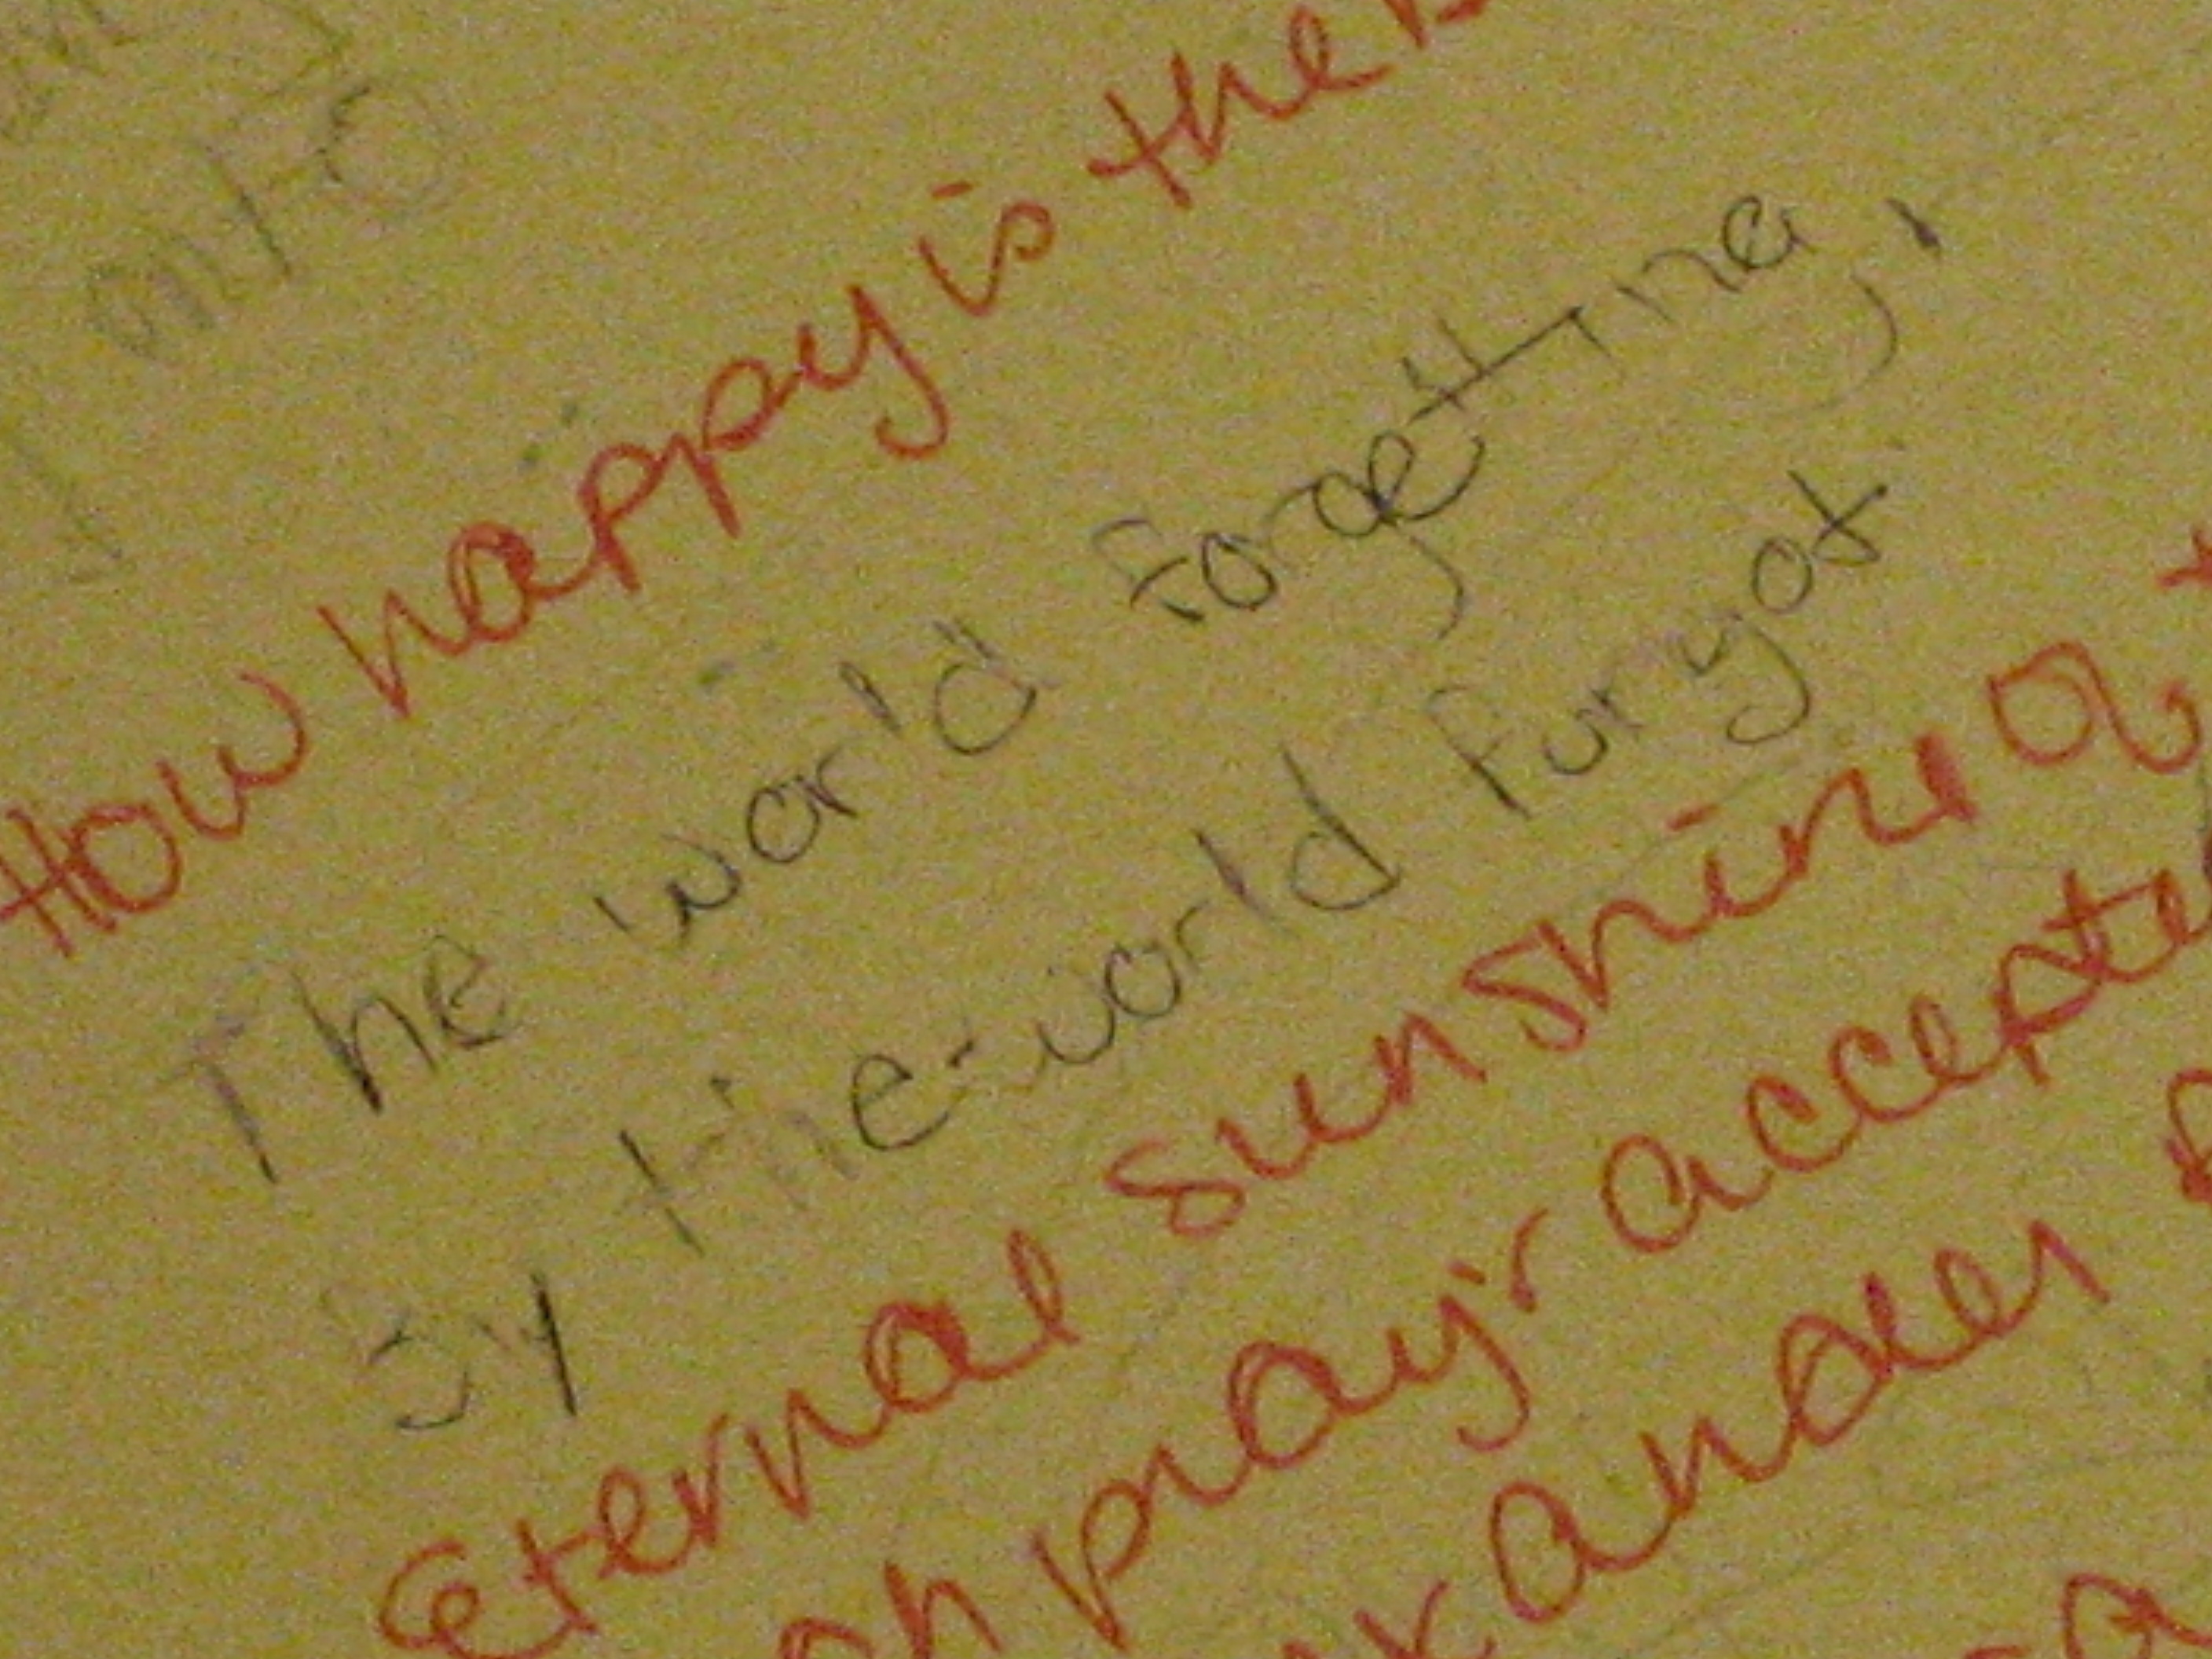 How happy is the
The world forgetting,
By the world forgot
Eternal sunshine of
pray'r accepte